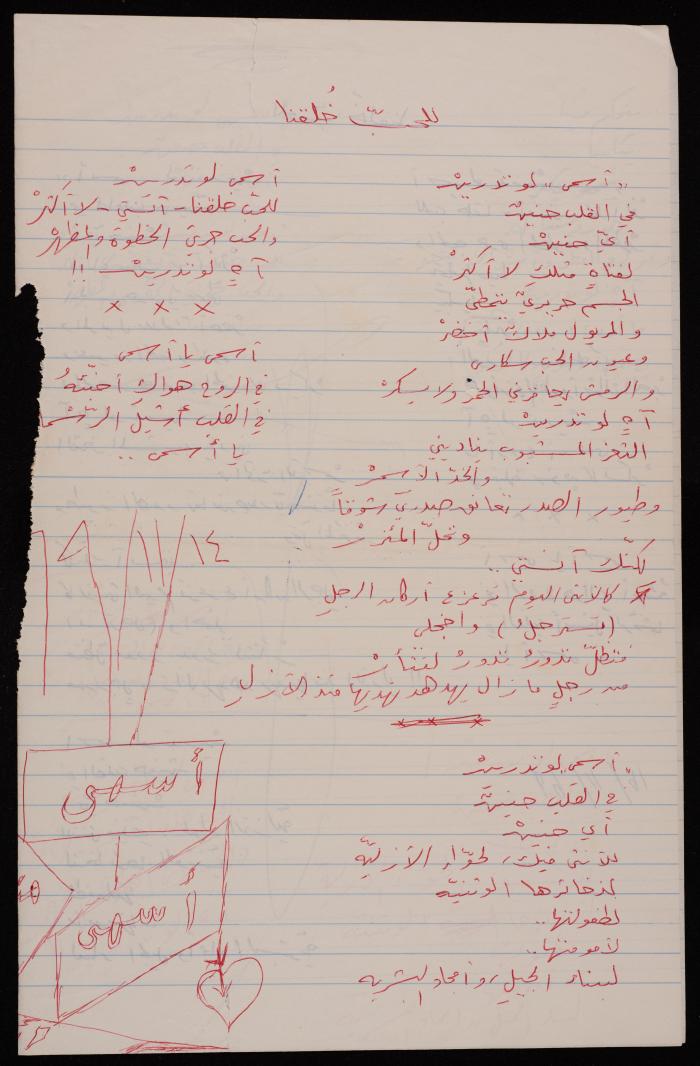 للحبّ خُلقنا
"أسمى" لو تدرين
في القلب حنين
أيّ حنين
لفتاةٍ مثلكِ لا أكثرْ
الجسم حريريّ يتمطّى
والمريول ملاك أخضرْ
وعيون الحب سكارى
والرمش يعاقرني الخمر ولا يسكرْ
آهٍ لو تدرين
الثغر المشبوب يناديني
والخدّ الأسمرْ
وطيور الصدر تعانق صدري شوقاً
وتحلّ المئزرْ
لكنّك أنستي ..
كالأنثى اليوم تزعزع أركان الرجلِ
(تسترجلُ) واخجلي
فتظلّ تدورُ تدورُ لتثأرْ
من رجلٍ ما زال يهدهد نهديها منذ الأزلِ
× × ×
أسمى لو تدرين
في القلب حنين
أي حنين
للأنثى فيك، لحوّاء الأزليّة
لذخائرها الوثنيّة
لطفولتها..
لأمومتها..
لبناء الجيل، وأمجاد البشرية
أسمى لو تدرين
للحبّ خلقنا - آنستي - لا أكثرْ
والحب جريئ الخطوة والمظهرْ
آهٍ لو تدرين !!
× × ×
أسمى يا أسمى
في الروح هواك أخبّئهُ
في القلب أشيل الرسما
يا أسمى ..
١٤/١١/
أسمى
أسمى